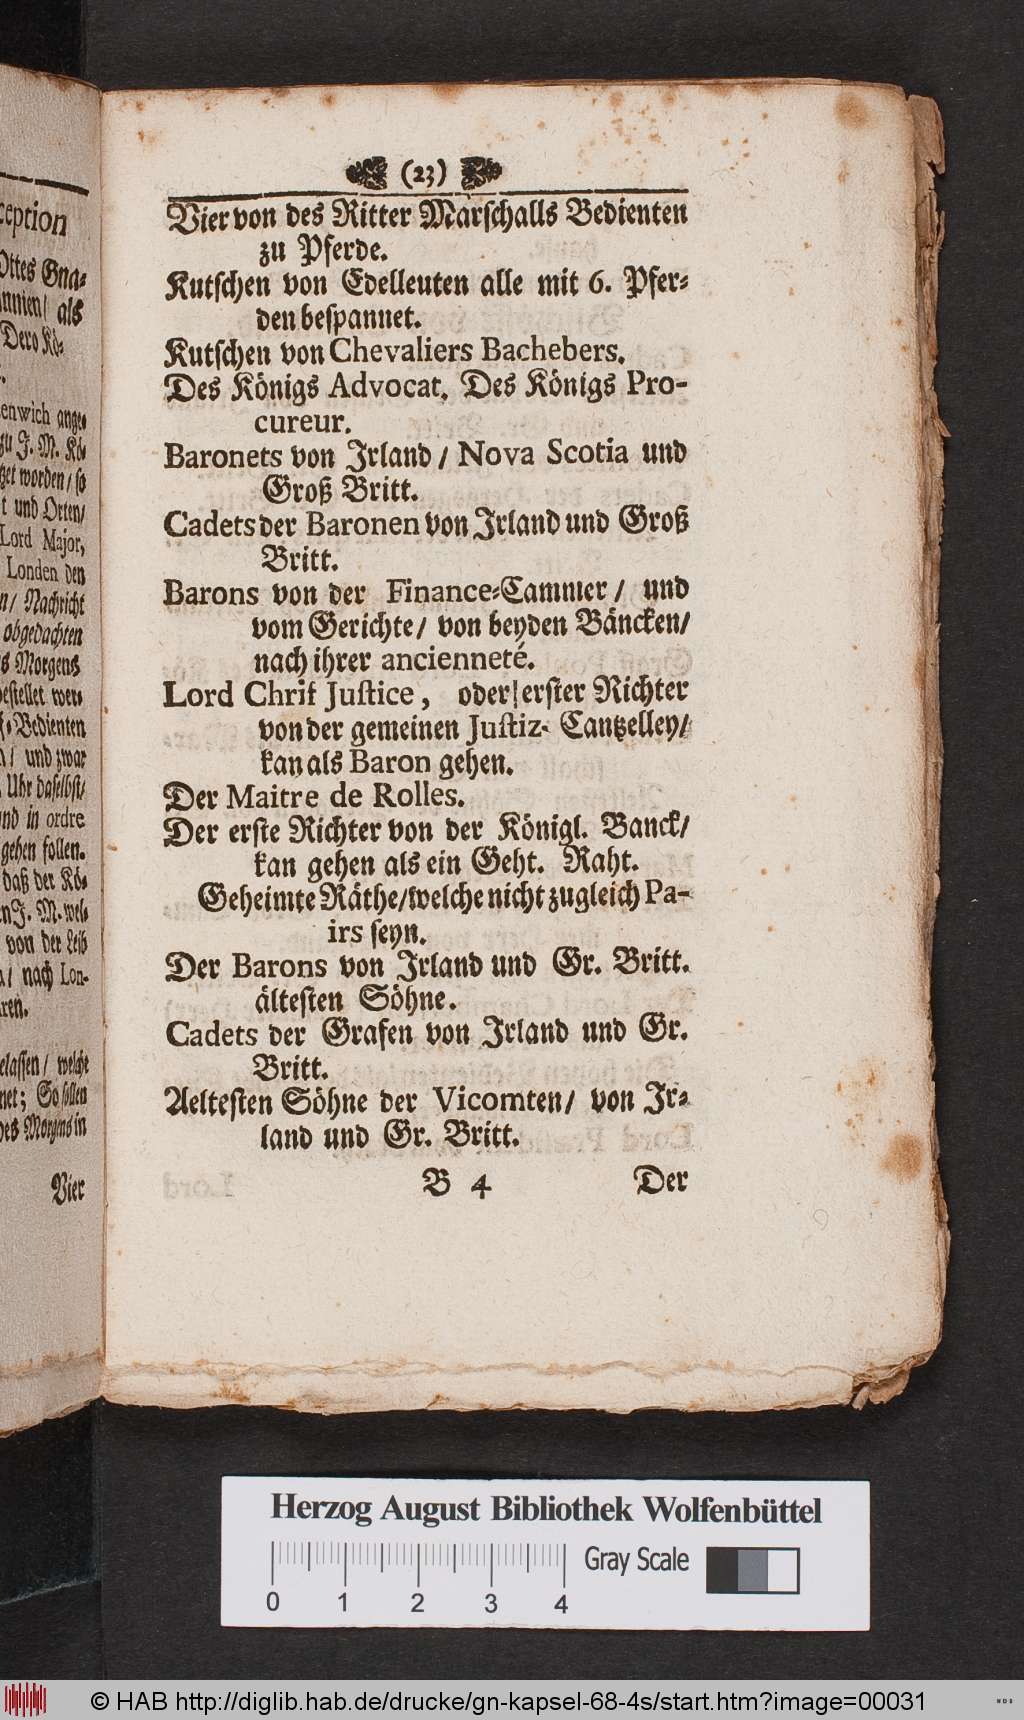 ception
Ottes Gna-
annien/ als
Dero Kö-
enwich ange-
zu J. M. Kö-
tzet worden/ so
t und Orten/
Lord Major,
Londen den
n/ Nachricht
obgedachten
s Morgens
bestellet wer-
s-Bedienten
n/ und zwar
Uhr daselbst/
und in ordre
gehen sollen.
daß der Kö-
en J. M. wel-
von der Leib
n/ nach Lon-
ren.
elassen/ welche
net; So sollen
des Morgens in
Vier
(23)
Vier von des Ritter Marschalls Bedienten
zu Pferde.
Kutschen von Edelleuten alle mit 6. Pfer-
den bespannet.
Kutschen von Chevaliers Bachebers.
Des Königs Advocat, Des Königs Pro-
cureur.
Baronets von Irland / Nova Scotia und
Groß Britt.
Cadets der Baronen von Irland und Groß
Britt.
Barons von der Finance-Cammer / und
vom Gerichte/ von beyden Bäncken/
nach ihrer ancienneté.
Lord Chrif Justice, oder erster Richter
von der gemeinen Justiz- Cantzelley/
kan als Baron gehen.
Der Maitre de Rolles.
Der erste Richter von der Königl. Banck/
kan gehen als ein Geht. Raht.
Geheimte Räthe/welche nicht zugleich Pa-
irs seyn.
Der Barons von Irland und Gr. Britt.
ältesten Söhne.
Cadets der Grafen von Irland und Gr.
Britt.
Aeltesten Söhne der Vicomten/ von Ir-
land und Gr. Britt.
B 4 Der
Herzog August Bibliothek Wolfenbüttel
Gray Scale
0 1 2 3 4
© HAB http://diglib.hab.de/drucke/gn-kapsel-68-4s/start.htm?image=00031